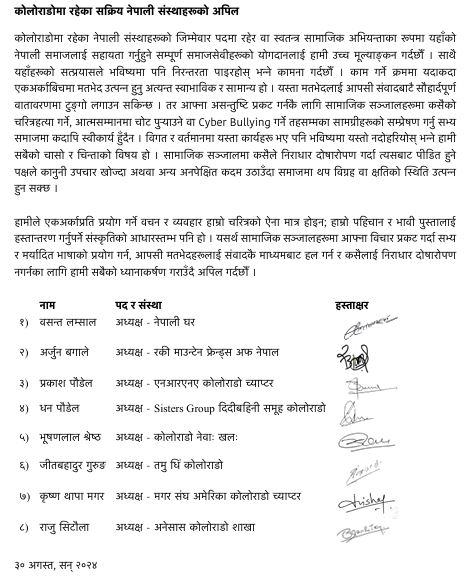 कोलोराडोमा रहेका सक्रिय नेपाली संस्थाहरूको अपिल
कोलोराडोमा रहेका नेपाली संस्थाहरूको जिम्मेवार पदमा रहेर वा स्वतन्त्र सामाजिक अभियन्ताका रूपमा यहाँको
नेपाली समाजलाई सहायता गर्नुहुने सम्पूर्ण समाजसेवीहरूको योगदानलाई हामी उच्च मूल्याङ्कन गर्दछौँ । साथै
यहाँहरूको सत्प्रयासले भविष्यमा पनि निरन्तरता पाइरहोस् भन्ने कामना गर्दछौँ । काम गर्ने क्रममा यदाकदा
एकअर्काबिचमा मतभेद उत्पन्न हुनु अत्यन्त स्वाभाविक र सामान्य हो । यस्ता मतभेदलाई आपसी संवादबाटै सौहार्दपूर्ण
वातावरणमा टुङ्गो लगाउन सकिन्छ । तर आफ्ना असन्तुष्टि प्रकट गर्नकै लागि सामाजिक सञ्जालहरूमा कसैको
चरित्रहत्या गर्ने, आत्मसम्मानमा चोट पुऱ्याउने वा Cyber Bullying गर्ने तहसम्मका सामग्रीहरूको सम्प्रेषण गर्नु सभ्य
समाजमा कदापि स्वीकार्य हुँदैन । विगत र वर्तमानमा यस्ता कार्यहरू भए पनि भविष्यमा यस्तो नदोहरियोस् भन्ने हामी
सबैको चासो र चिन्ताको विषय हो । सामाजिक सञ्जालमा कसैले निराधार दोषारोपण गर्दा त्यसबाट पीडित हुने
पक्षले कानुनी उपचार खोज्दा अथवा अन्य अनपेक्षित कदम उठाउँदा समाजमा थप विग्रह वा क्षतिको स्थिति उत्पन्न
हुन सक्छ ।
हामीले एकअर्काप्रति प्रयोग गर्ने वचन र व्यवहार हाम्रो चरित्रको ऐना मात्र होइन; हाम्रो पहिचान र भावी पुस्तालाई
हस्तान्तरण गर्नुपर्ने संस्कृतिको आधारस्तम्भ पनि हो । यसर्थ सामाजिक सञ्जालहरूमा आफ्ना विचार प्रकट गर्दा सभ्य
र मर्यादित भाषाको प्रयोग गर्न, आपसी मतभेदहरूलाई संवादकै माध्यमबाट हल गर्न र कसैलाई निराधार दोषारोपण
नगर्नका लागि हामी सबैको ध्यानाकर्षण गराउँदै अपिल गर्दछौँ ।
नाम पद र संस्था हस्ताक्षर
१) वसन्त लम्साल अध्यक्ष - नेपाली घर
२) अर्जुन बगाले अध्यक्ष - रकी माउन्टेन फ्रेन्ड्स अफ नेपाल
३) प्रकाश पौडेल अध्यक्ष - एनआरएनए कोलोराडो च्याप्टर
४) धन पौडेल अध्यक्ष - Sisters Group दिदीबहिनी समूह कोलोराडो
५) भूषणलाल श्रेष्ठ अध्यक्ष - कोलोराडो नेवाः खलः
६) जीतबहादुर गुरुङ अध्यक्ष - तमु धिं कोलोराडो
७) कृष्ण थापा मगर अध्यक्ष - मगर संघ अमेरिका कोलोराडो च्याप्टर
८) राजु सिटौला अध्यक्ष - अनेसास कोलोराडो शाखा
३० अगस्त, सन् २०२४